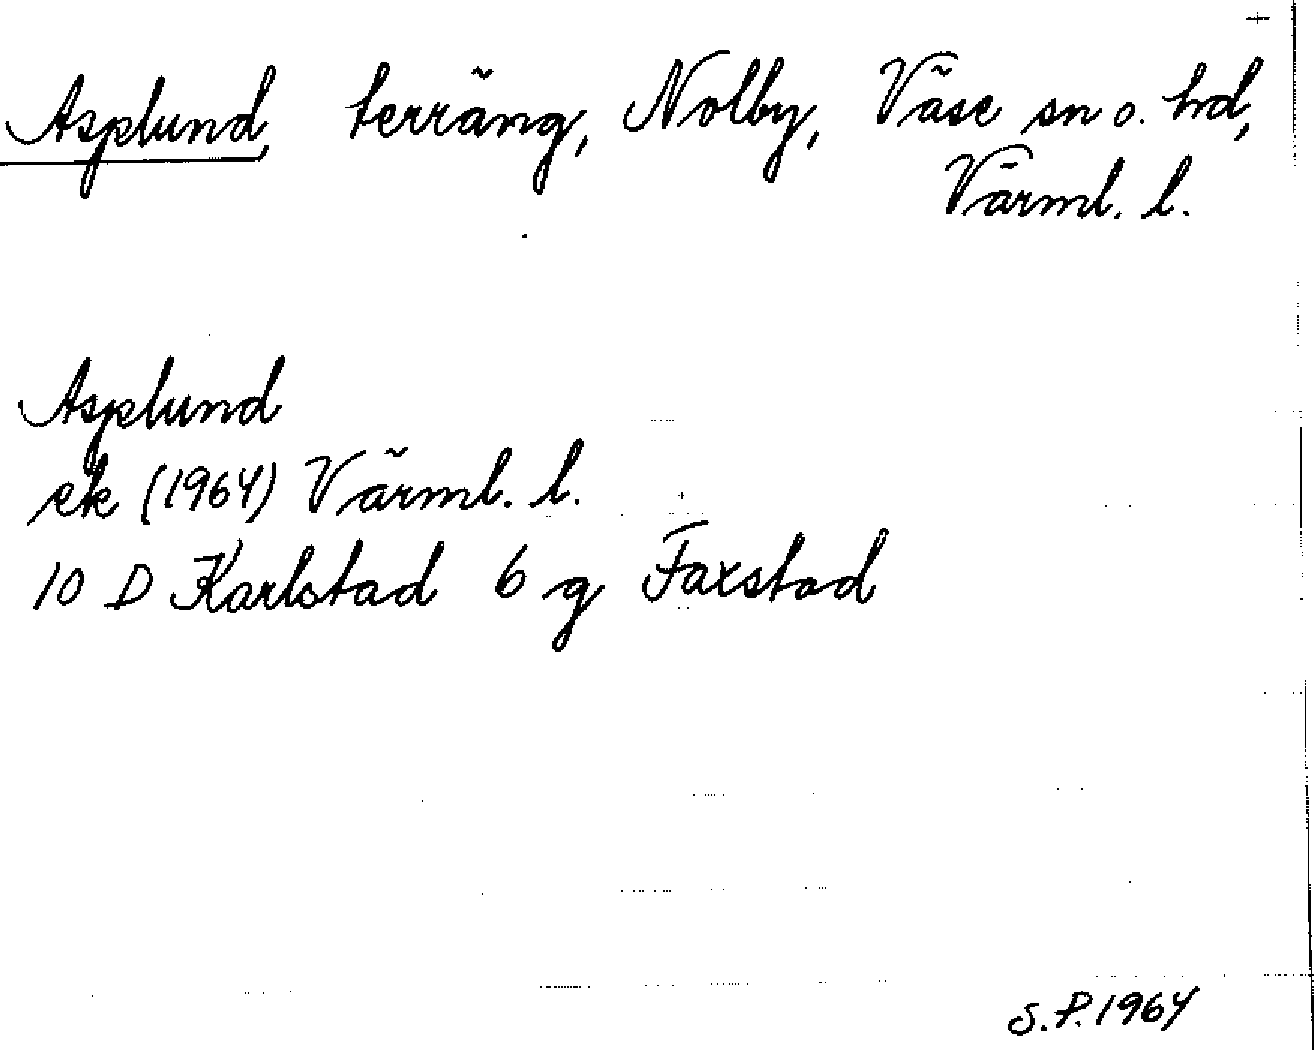 Asplund, terräng, Nolby, Väse sn o. hd,
Värml. l.
Asplund
ek (1964) Värml. l.
10 D Karlstad 6 g Faxstad
S.P. 1964